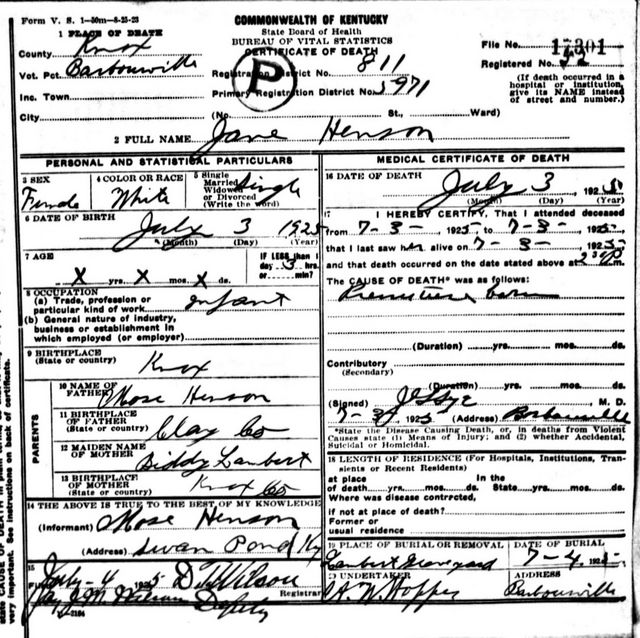 Form V. S. 1-50m-8-25-23
COMMONWEALTH OF KENTUCKY
State Board of Health
BUREAU OF VITAL STATISTICS
CERTIFICATE OF DEATH
1 PLACE OF DEATH
County Knox
Vot. Pct. Barbourville
Inc. Town
City
File No. 17301
Registered No. 52
Registration District No. 811
Primary Registration District No. 5971
P
(If death occurred in a
hospital or institution,
give its NAME instead
of street and number.)
(No. St., Ward)
2 FULL NAME Jane Henson
PERSONAL AND STATISTICAL PARTICULARS
3 SEX
Female
4 COLOR OR RACE
White
5 Single
Married
Widowed
or Divorced
(Write the word)
Single
6 DATE OF BIRTH
July 3 1925
(Month) (Day) (Year)
7 AGE
X yrs. X mos. X ds.
IF LESS than 1
day 3 hrs.
or min?
8 OCCUPATION
(a) Trade, profession or
particular kind of work infant
(b) General nature of industry,
business or establishment in
which employed (or employer)
9 BIRTHPLACE
(State or country) Knox
PARENTS
10 NAME OF
FATHER Mose Henson
11 BIRTHPLACE
OF FATHER
(State or country) Clay Co
12 MAIDEN NAME
OF MOTHER Biddy Lambert
13 BIRTHPLACE
OF MOTHER
(State or country) Knox Co
14 THE ABOVE IS TRUE TO THE BEST OF MY KNOWLEDGE
(Informant) Mose Henson
(Address) Swan Pond Ky
15
July-4 1925 Wilson
Registrar
MEDICAL CERTIFICATE OF DEATH
16 DATE OF DEATH
July 3, 1925
(Month) (Day) (Year)
17 I HEREBY CERTIFY, That I attended deceased
from 7-3- 1925 to 7-3- 1925
that I last saw her alive on 7-3- 1925
and that death occurred on the date stated above at
The CAUSE OF DEATH* was as follows:
Premature born
(Duration) yrs. mos. ds.
Contributory
(Secondary)
(Duration) yrs. mos. ds.
(Signed) M. D.
7-3 1925 (Address) Barbourville
*State the Disease Causing Death, or, in deaths from Violent
Causes state (1) Means of Injury; and (2) whether Accidental,
Suicidal or Homicidal.
18 LENGTH OF RESIDENCE (For Hospitals, Institutions, Tran-
sients or Recent Residents)
at place In the
of death yrs. mos. ds. State yrs. mos. ds.
Where was disease contrcted,
if not at place of death?
Former or
usual residence
19 PLACE OF BURIAL OR REMOVAL
Lambert Graveyard
DATE OF BURIAL
7-4 1925
20 UNDERTAKER
ADDRESS
Barbourville
state CAUSE OF DEATH in
very important. See instructions on back of certificate.